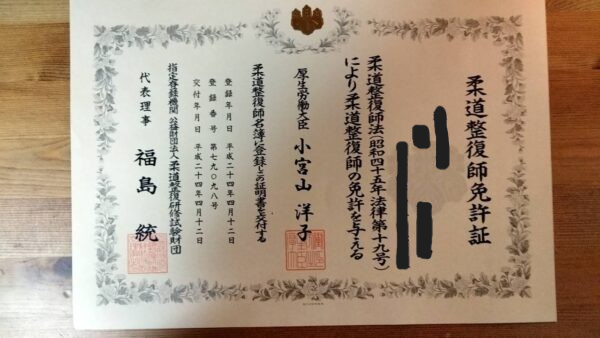 柔道整復師免許証
柔道整復師法(昭和四十五年法律第十九号)
により柔道整復師の免許を与える
厚生労働大臣 小宮山 洋子
柔道整復師名簿に登録しこの証明書を交付する
登録年月日 平成二十四年四月十二日
登録番号 第七九〇九八号
交付年月日 平成二十四年四月十二日
指定登録機関 公益財団法人柔道整復研修試験財団
代表理事 福島 統